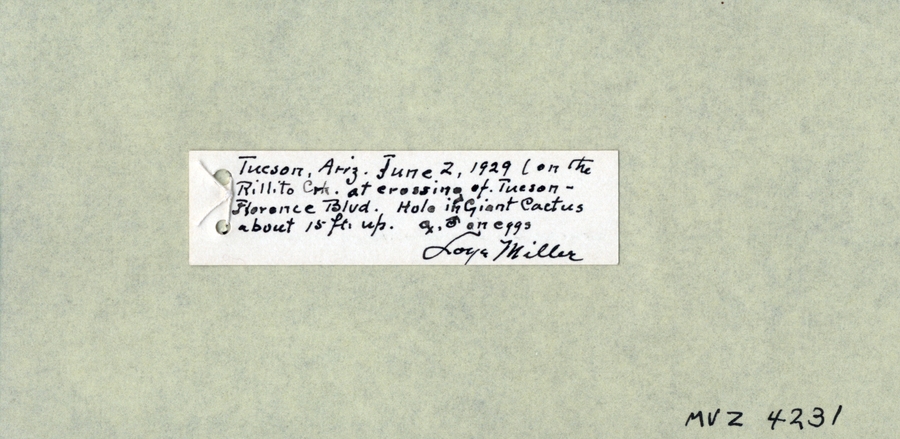 Tucson, Ariz. June 2, 1929 (on the
Rillito Crk. at crossing of. Tucson-
Florence Blvd. Hole in Giant Cactus
about 15 ft. up. ♂ on eggs
Loye Miller
MVZ 4231